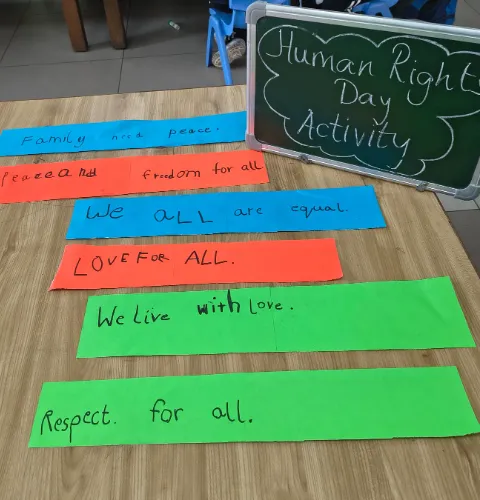 Human Rights
Day
Activity
Family need peace.
Peace and freedom for all
We ALL are equal.
LOVE FOR ALL.
We Live with Love.
Respect. for all.